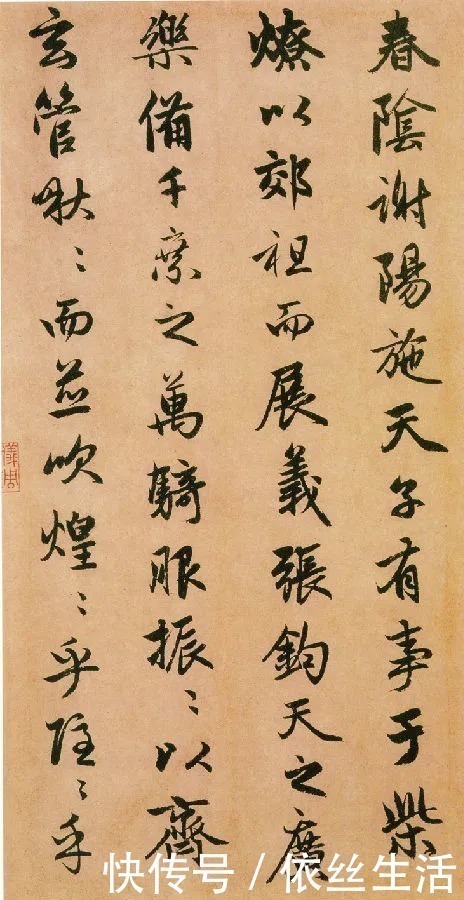 春陰謝陽施天子有事于柴
燎以郊祖而展義張鈞天之廣
樂備千乘之萬騎服振〻以齊
玄管啾〻而並吹煌〻乎隱〻乎
快传号 / 依丝生活